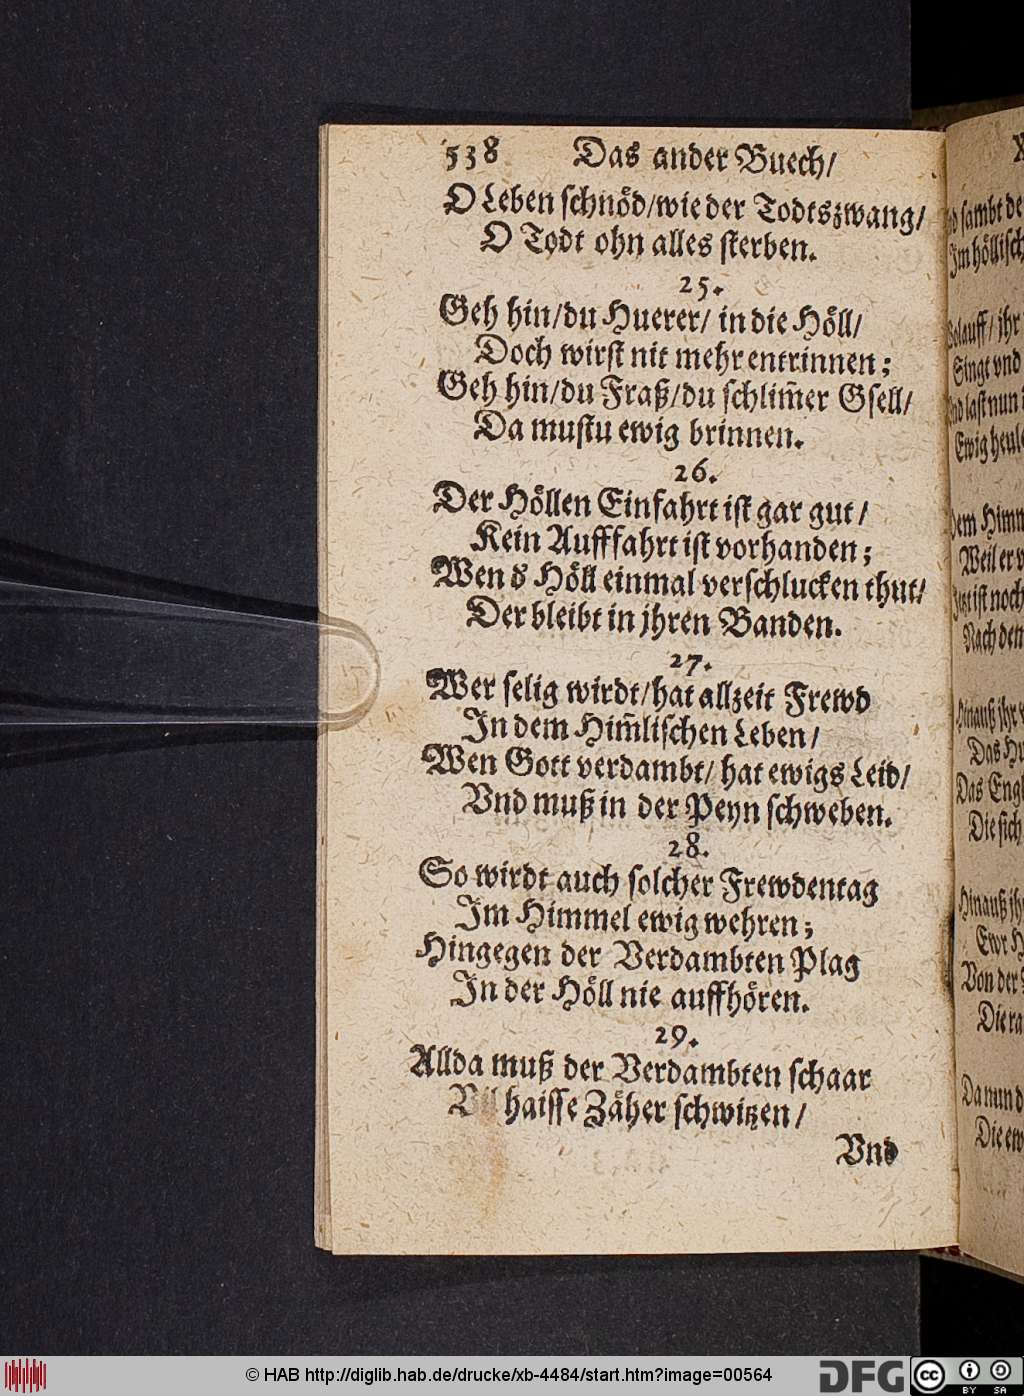 538 Das ander Buech/
O Leben schnöd/wie der Todtszwang/
O Todt ohn alles sterben.
25.
Geh hin/du Huerer/ in die Höll/
Doch wirst nit mehr entrinnen;
Geh hin/du Fraß/du schlim̄er Gsell/
Da mustu ewig brinnen.
26.
Der Höllen Einfahrt ist gar gut/
Kein Aufffahrt ist vorhanden;
Wen d' Höll einmal verschlucken thut/
Der bleibt in jhren Banden.
27.
Wer selig wirdt/hat allzeit Frewd
In dem Him̄lischen Leben/
Wen Gott verdambt/ hat ewigs Leid/
Vnd muß in der Peyn schweben.
28.
So wirdt auch solcher Frewdentag
Im Himmel ewig wehren;
Hingegen der Verdambten Plag
In der Höll nie auffhören.
29.
Allda muß der Verdambten schaar
Vil haisse Zäher schwitzen/
Vnd
sambt
Im
ihr
Singt vnd
last nun
Ewig
Weil er
ist noch
Nach den
Hinauß ihr
Das
Das
Die sich
Hinauß
Von der
Die
Da nun
Die
© HAB http://diglib.hab.de/drucke/xb-4484/start.htm?image=00564
DFG
cc
BY SA